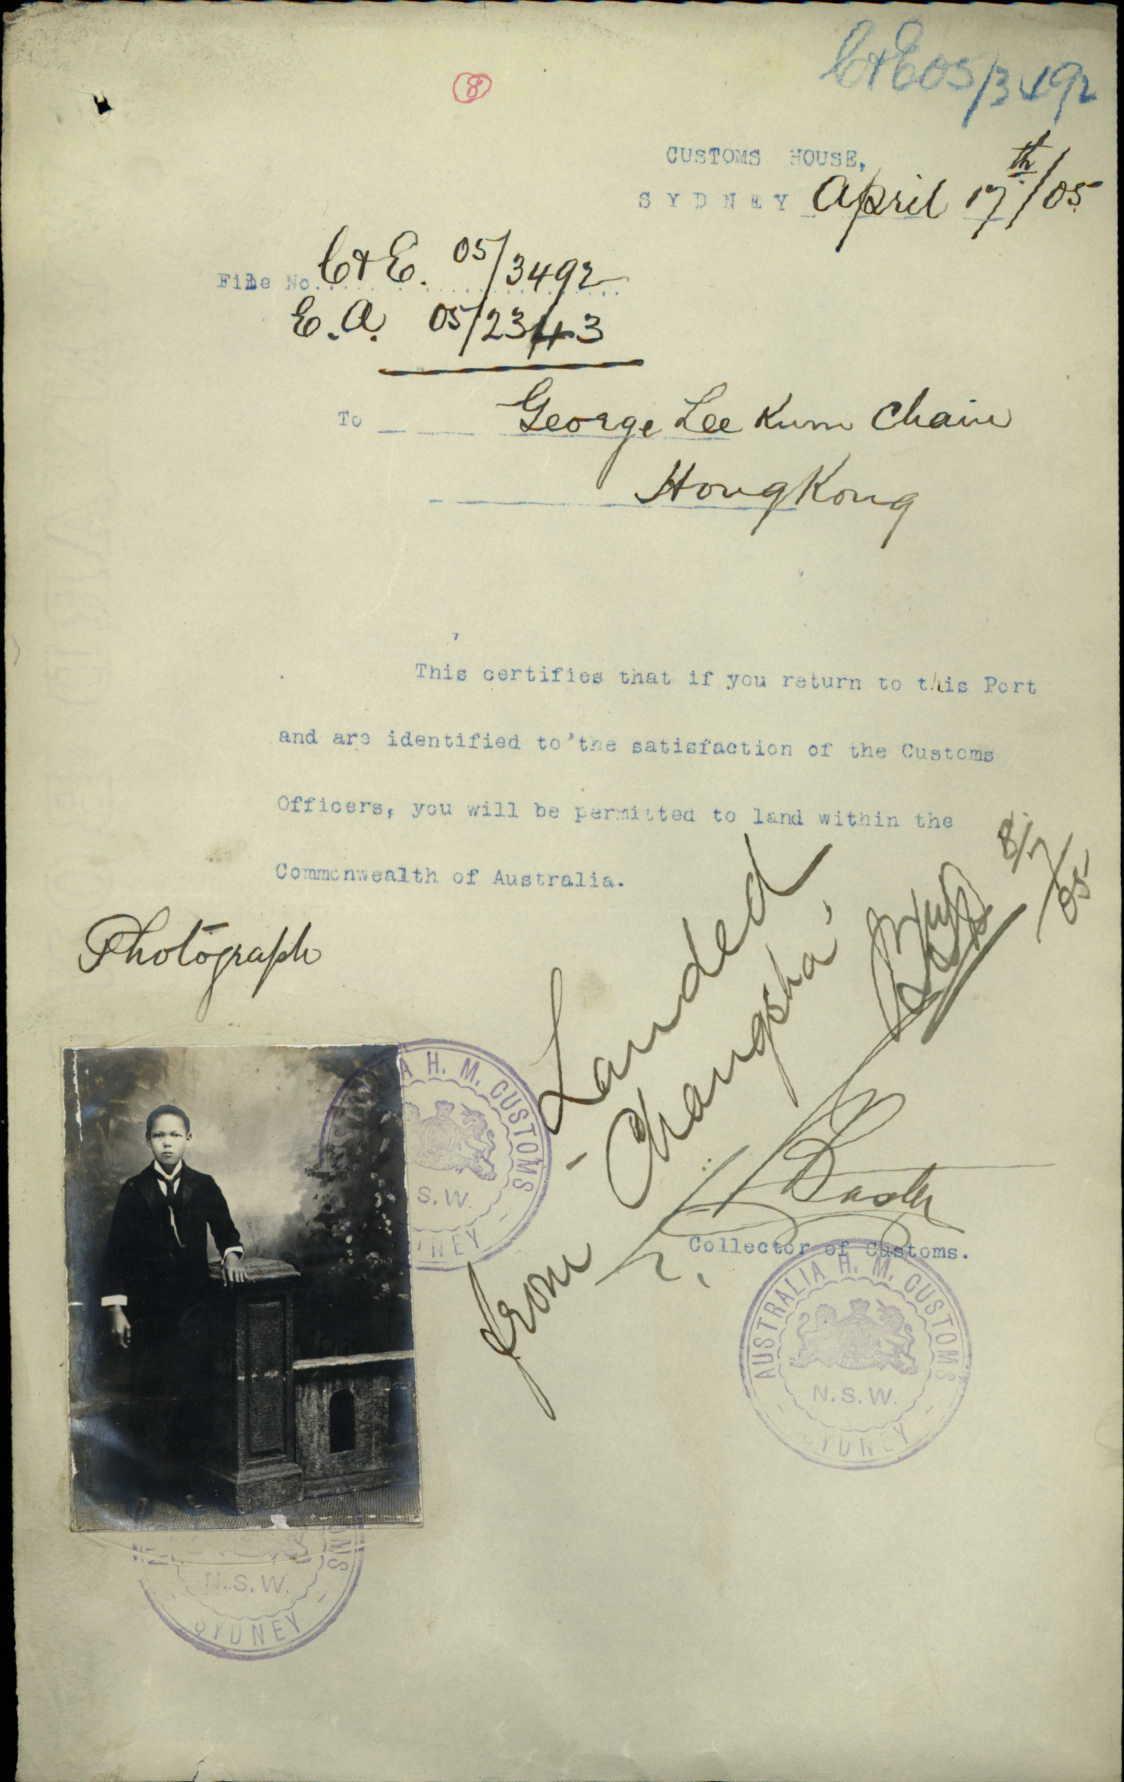 C&E05/3492
8
CUSTOMS HOUSE,
SYDNEY April 17th/05
File No. C&E. 05/3492
E.A. 05/2343
To George Lee Kum Chain
HongKong
This certifies that if you return to this Port
and are identified to the satisfaction of the Customs
Officers, you will be permitted to land within the
Commonwealth of Australia.
Photograph
Landed
from Changsha
8/7/05
Baxter
Collector of Customs.
A H. M. CUSTOMS
S.W.
DNEY
AUSTRALIA H. M. CUSTOMS
N.S.W.
SYDNEY
OMS
N.S.W.
SYDNEY